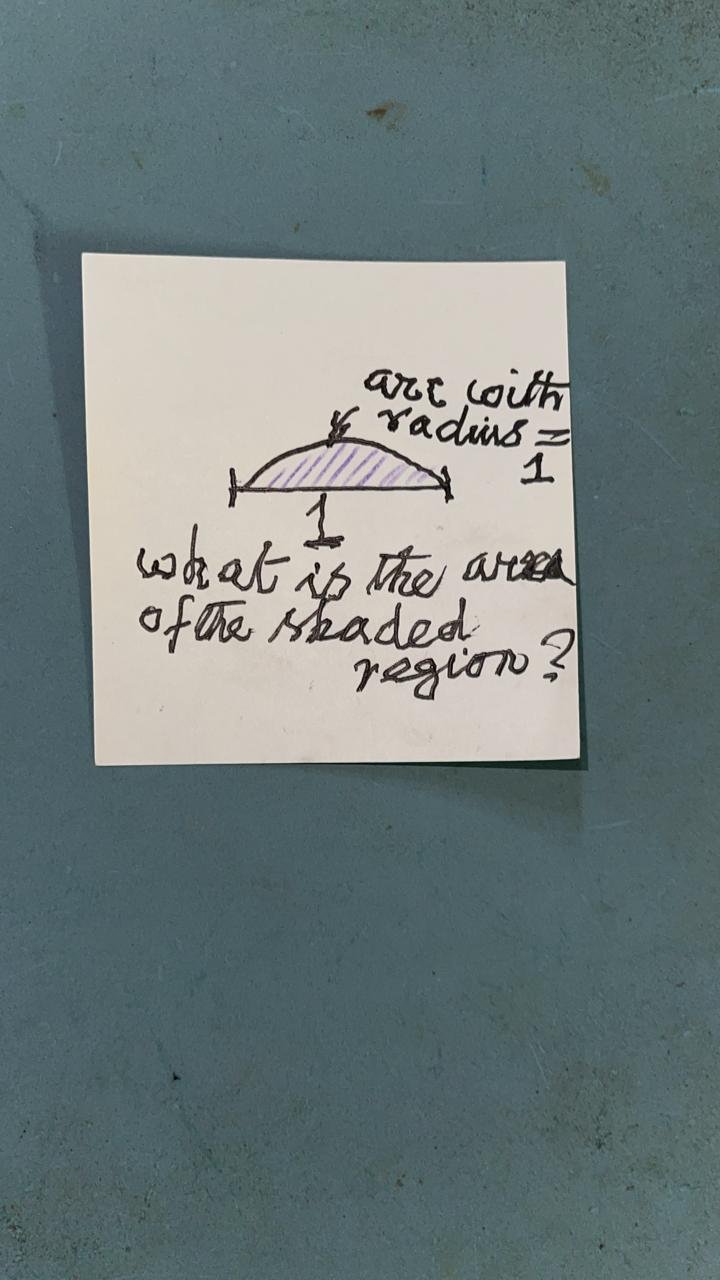 arc with
radius =
1
1
what is the area
of the shaded
region?